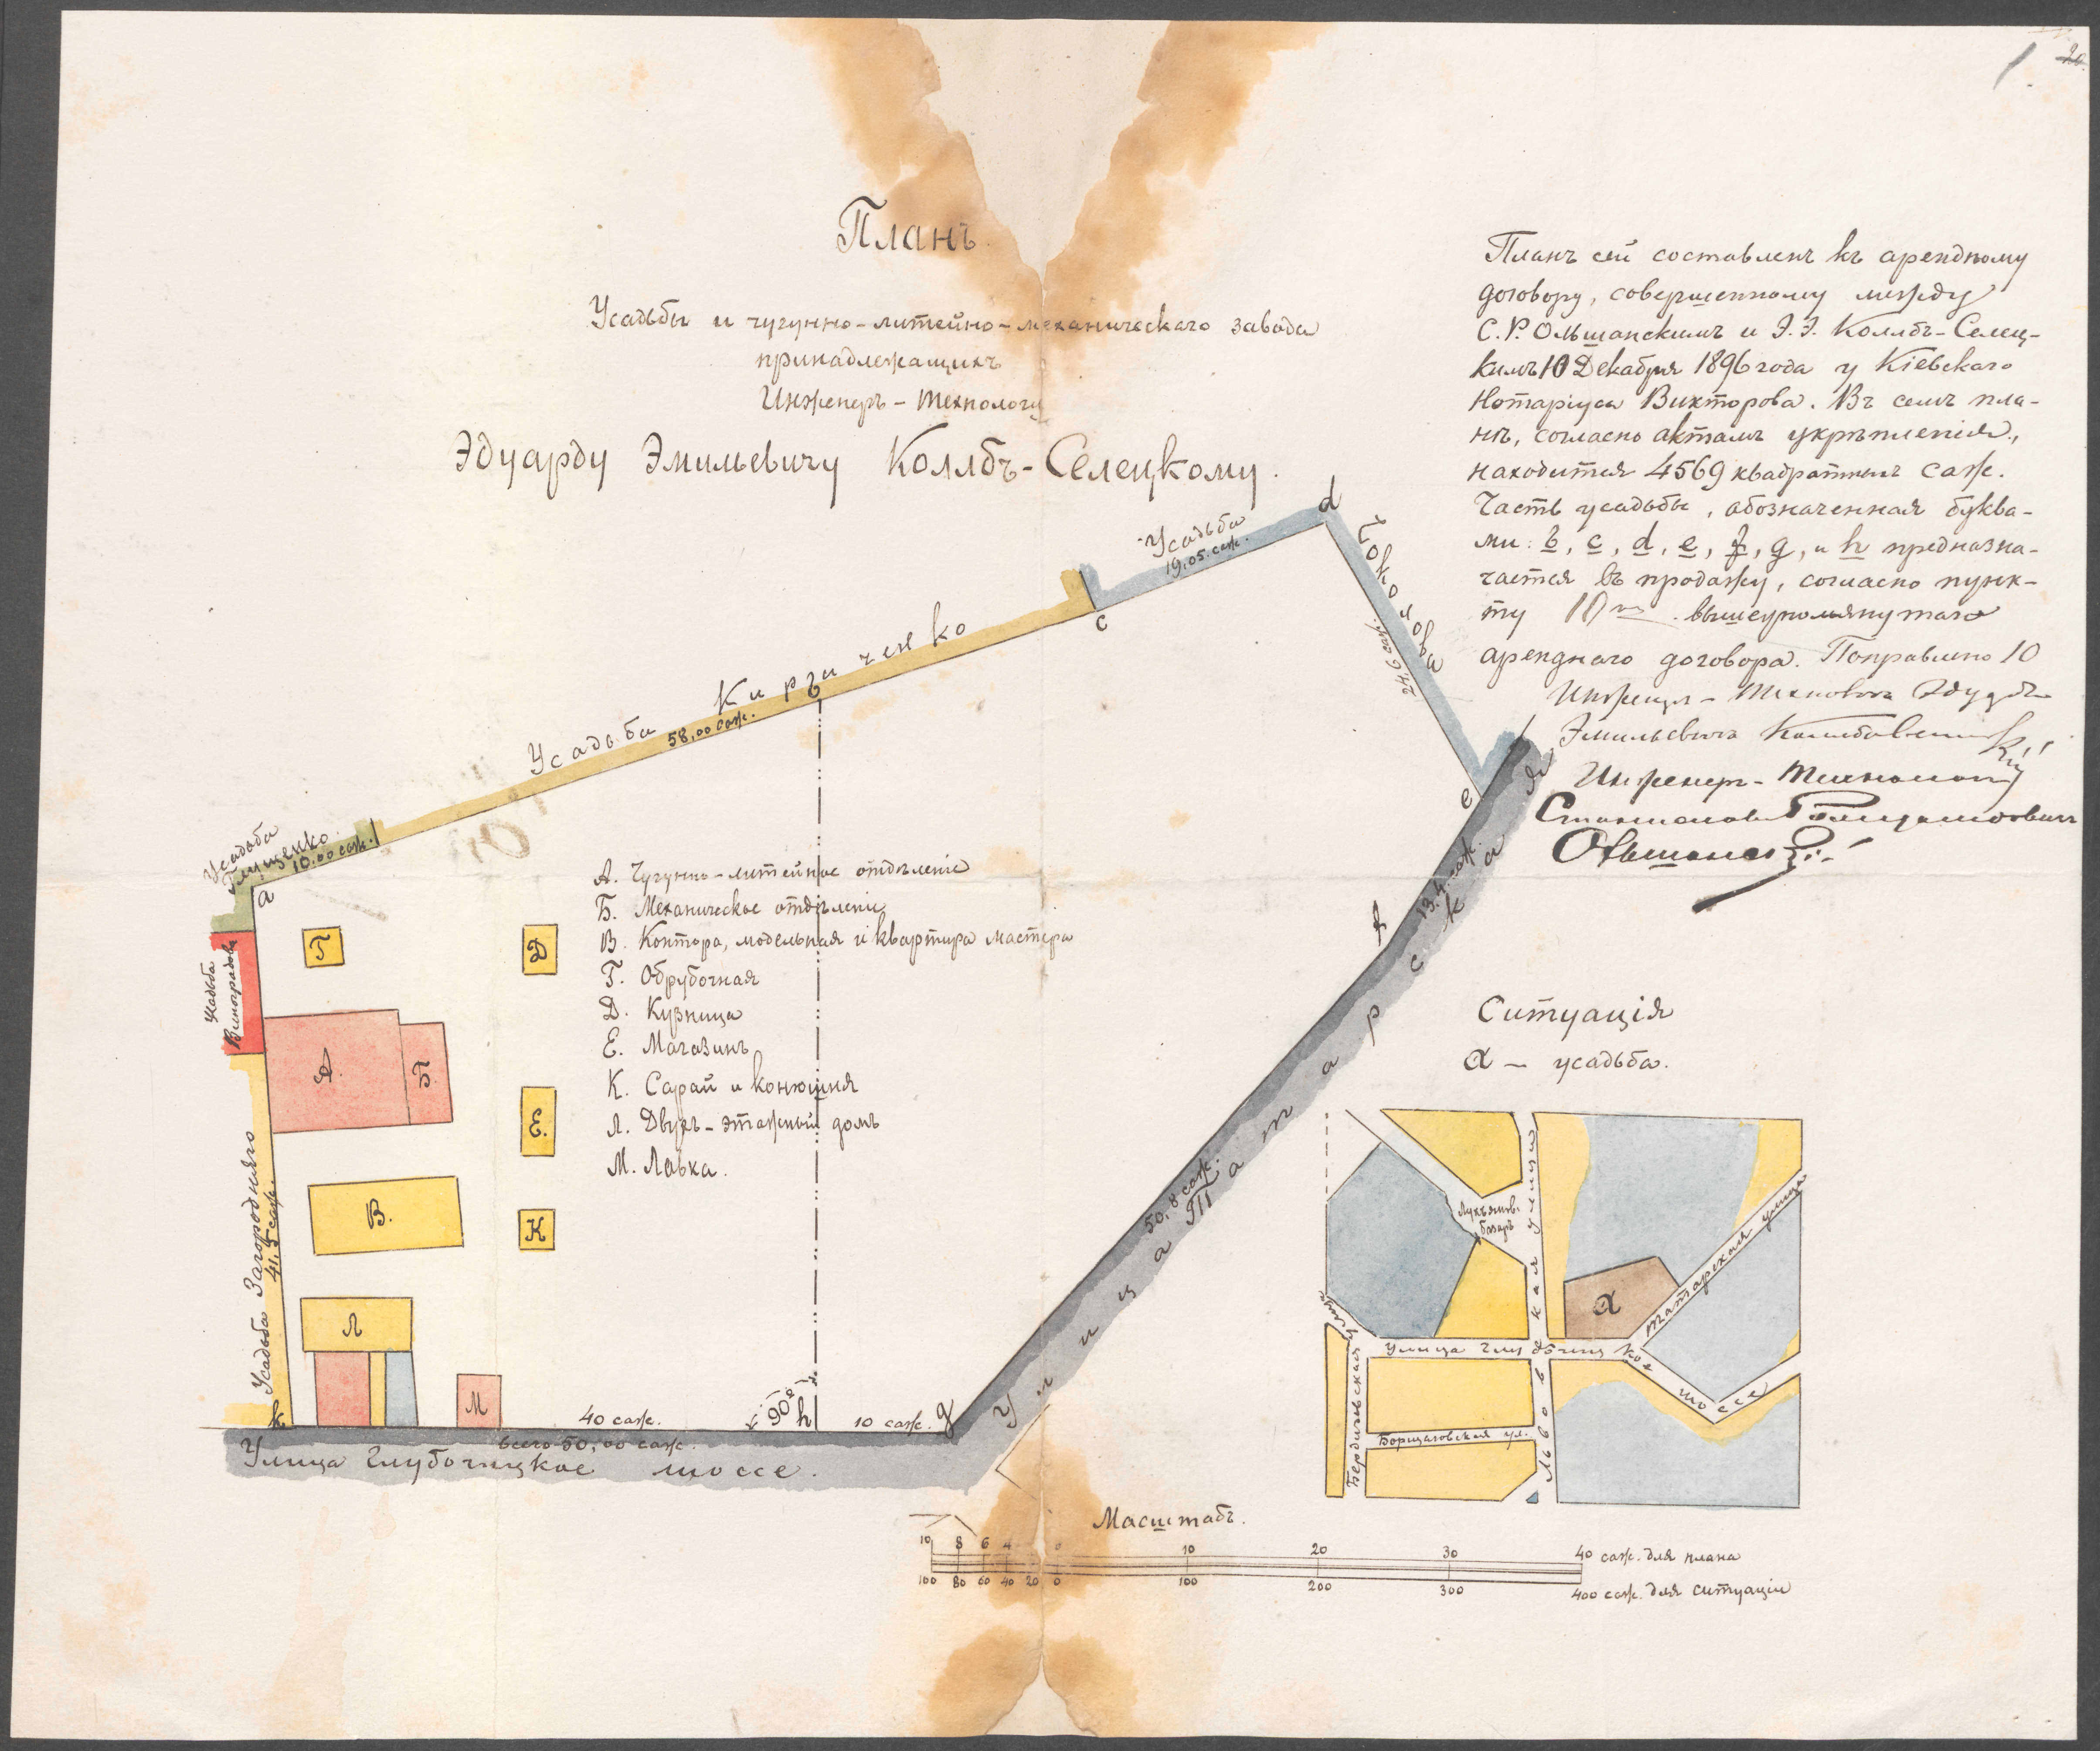 1
20.
Планъ
Усадьбы и чугунно-литейно-механическаго завода
принадлежащихъ
Инженеръ-Технологу
Эдуарду Эмильевичу Коллбъ-Селецкому.
Планъ сей составленъ къ арендному
договору, совершенному между
С.Р. Ольшанскимъ и Э.Э. Коллбъ-Селец-
кимъ 10 Декабря 1896 года у Кіевскаго
Нотаріуса Викторова. Въ семъ пла-
нѣ, согласно актамъ укрѣпленія,
находится 4569 квадратныхъ саж.
Часть усадьбы, обозначенная буква-
ми: b, c, d, e, f, g, и h предназна-
чается въ продажу, согласно пунк-
ту 10 вышеупомянутаго
аренднаго договора. Поправлено 10
Инженеръ-Технологъ
Эмильевичъ
Инженеръ-Технологъ
Ольшанскій
Усадьба
19,05 саж.
d
Усадьба Кириченко
58,00 саж.
b
c
24,6 саж.
e
13,4 саж.
f
50,8 саж.
Улица Татарская
Усадьба
Глущенко
10,00 саж.
a
Усадьба
Виноградова
Усадьба Загородняго
41,5 саж.
k
А.
Б.
В.
Г
Д
Е.
К
Л
М
А. Чугунно-литейное отдѣленіе
Б. Механическое отдѣленіе
В. Контора, модельная и квартира мастера
Г. Обрубочная
Д. Кузница
Е. Магазинъ
К. Сарай и конюшня
Л. Двухъ-этажный домъ
М. Лавка.
40 саж.
90°
h
10 саж.
g
всего 50,00 саж.
Улица Глубочицкое шоссе.
Ситуація
α – усадьба.
Лукьянов.
базаръ
Львовская улица
Татарская улица
α
Улица Глубочицкое шоссе
Бердичевская улица
Борщаговская ул.
Масштабъ.
10 8 6 4 0 10 20 30 40 саж. для плана
100 80 60 40 20 0 100 200 300 400 саж. для ситуаціи